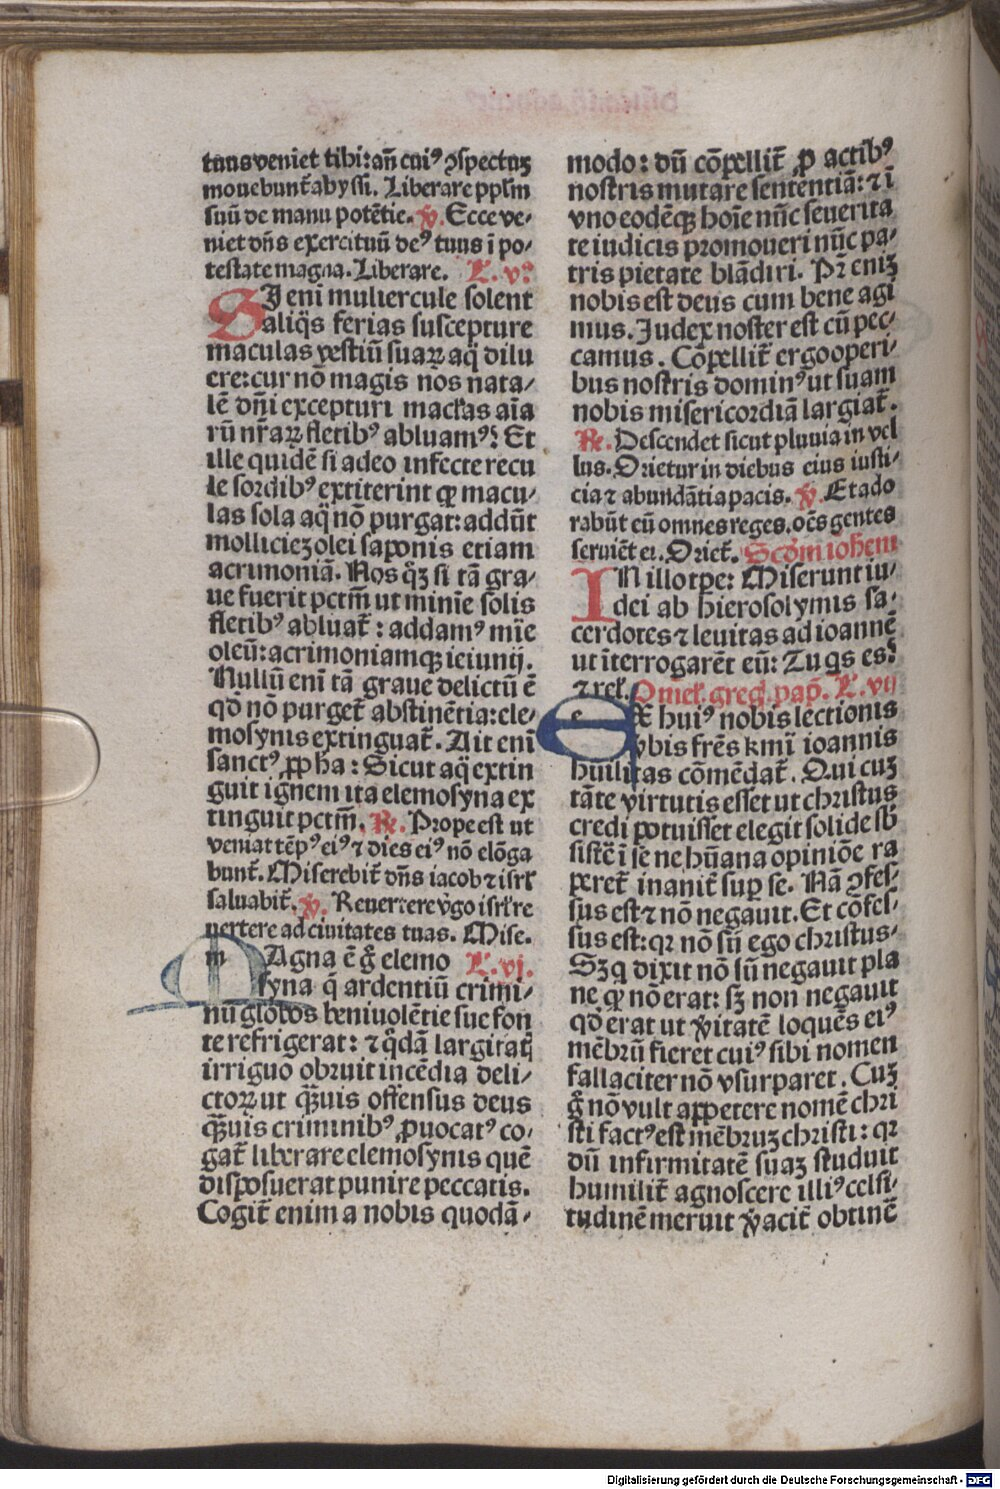 tuus veniet tibi: añ cuiꝰ ꝯspectuꝫ
mouebunt̃ abyssi. Liberare pplm̄
suū de manu potētie. ℣. Ecce ve-
niet dn̄s exercituū deꝰ tuus ī po-
testate magna. Liberare. L. v.
SI eni mulierculе solent
aliq̄s ferias suscepture
maculas vestiū suaꝝ aq̄ dilu
ere: cur nō magis nos nata-
lē dn̄i excepturi mac̄las aīa
rū nr̄aꝝ fletibꝰ abluamꝰ? Et
ille quidē si adeo infecte recu
le sordibꝰ extiterint ꝙ macu-
las sola aq̄ nō purgat: addūt
molliciez olei saponis etiam
acrimoniā. Nos q̄ꝫ si tā gra-
ue fuerit pctm̄ ut minīe solis
fletibꝰ abluat̃: addamꝰ mīe
oleū: acrimoniamqꝫ ieiunij.
Nullū enī tā graue delictū ē
qd̄ nō purget̃ abstinētia: ele-
mosynis extinguat̃. Ait enī
sanctꝰ ꝓpha: Sicut aq̄ extin
guit ignem ita elemosyna ex
tinguit pctm̄. ℟. Prope est ut
veniat tēpꝰ eiꝰ ⁊ dies eiꝰ nō elōga
bunt̃. Miserebit̃ dn̄s iacob ⁊ isrl̄
saluabit̃. ℣. Reuertere v̄go isrl̄ re
uertere ad ciuitates tuas. Mise.
MAgna ē g̊ elemo L. vj.
syna q̄ ardentiū crimi-
nū globos beniuolētie sue fon
te refrigerat: ⁊ q̄dā largitatꝭ
irriguo obruit incēdia deli-
ctoꝝ ut q̄ꝫuis offensus deus
q̄ꝫuis criminibꝰ ꝓuocatꝰ co-
gat̃ liberare elemosynis quē
disposuerat punire peccatis.
Cogit̃ enim a nobis quodā-
modo: dū cōpellit̃ ꝓ actibꝰ
nostris mutare sententiā: ⁊ ī
vno eodēqꝫ hoīe nūc seuerita
te iudicis promoueri nūc pa-
tris pietate blādiri. Pr̄ eniꝫ
nobis est deus cum bene agi
mus. Judex noster est cū pec-
camus. Cōpellit̃ ergo operi-
bus nostris dominꝰ ut suam
nobis misericordiā largiat̃.
℟. Descendet sicut pluuia in vel
lus. Orietur in diebus eius iusti-
cia ⁊ abundātia pacis. ℣. Et ado
rabūt eū omnes reges. oēs gentes
seruiēt ei. Oriet̃. Scd̄m ioh̄em
IN illo tpe: Miserunt iu-
dei ab hierosolymis sa-
cerdotes ⁊ leuitas ad ioannē
ut īterrogarēt eū: Tu q̄s es?
⁊ rel̄. Omel̄. greḡ. pap̄. L. vij
EX huiꝰ nobis lectionis
v̄bis fr̄es kmī ioannis
huīlitas cōmēdat̃. Qui cuꝫ
tāte virtutis esset ut christus
credi potuisset elegit solide sb̄
sistē ī se ne hūana opiniōe ra
peret̃ inanit̃ suꝑ se. Nā ꝯfes-
sus est ⁊ nō negauit. Et cōfes-
sus est: qꝛ nō sū ego christus-
Sꝫ q̄ dixit nō sū negauit pla
ne ꝙ nō erat: sꝫ non negauit
qd̄ erat ut v̄itatē loquēs eiꝰ
mēbrū fieret cuiꝰ sibi nomen
fallaciter nō vsurparet. Cuꝫ
g̊ nō vult appetere nomē chri
sti factꝰ est mēbruꝫ christi: qꝛ
dū infirmitatē suaꝫ studuit
humilit̃ agnoscere illiꝰ celsi-
tudinē meruit v̄acit̃ obtinē
Digitalisierung gefördert durch die Deutsche Forschungsgemeinschaft - DFG